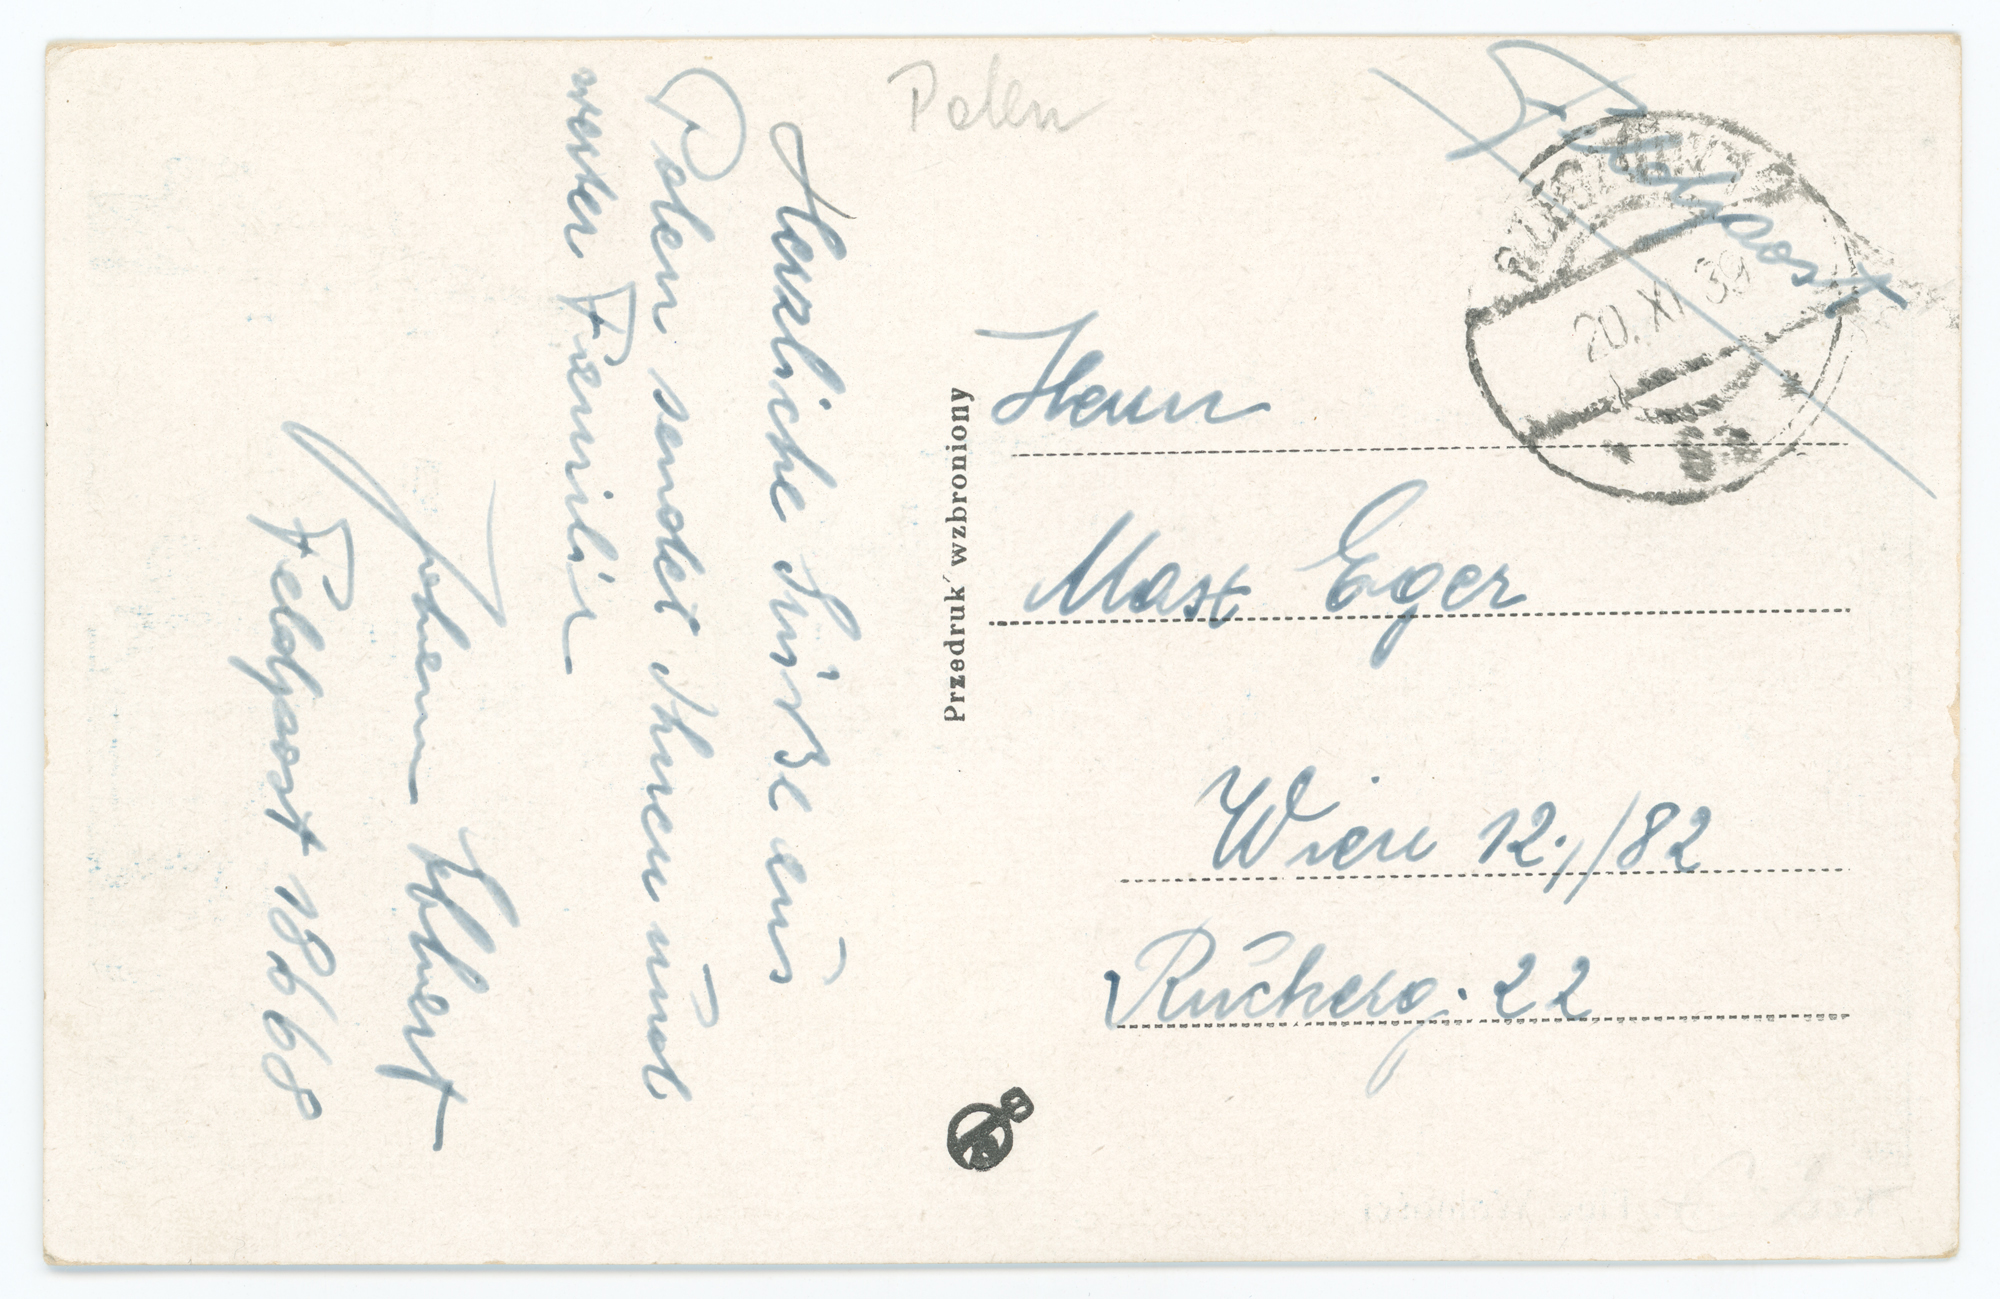 Polen
Feldpost
20. XI 39
Herrn
Max Eger
Wien 12./82
Ruckerg. 22
Przedruk wzbroniony
Herzliche Grüße aus
Polen sendet Ihnen und
werter Familie
Johann
Feldpost 18668